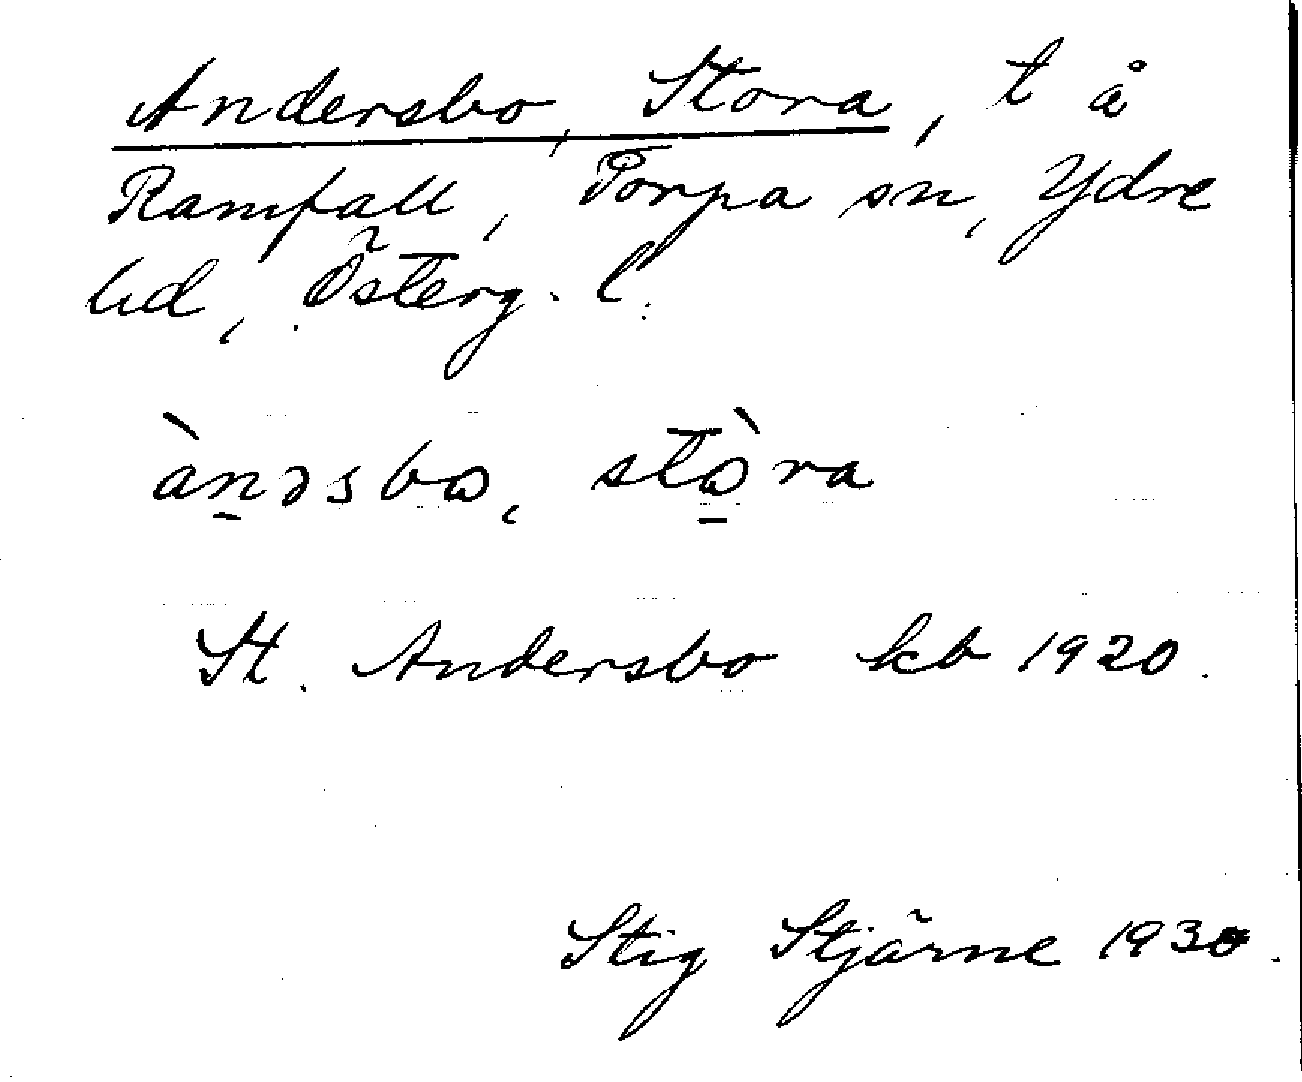 Andersbo, Stora, t å
Ramfall, Torpa sn, Ydre
hd, Österg. l.
àn̠əsbω, stὼ̠ra
St. Andersbo kb 1920.
Stig Stjärne 1930.